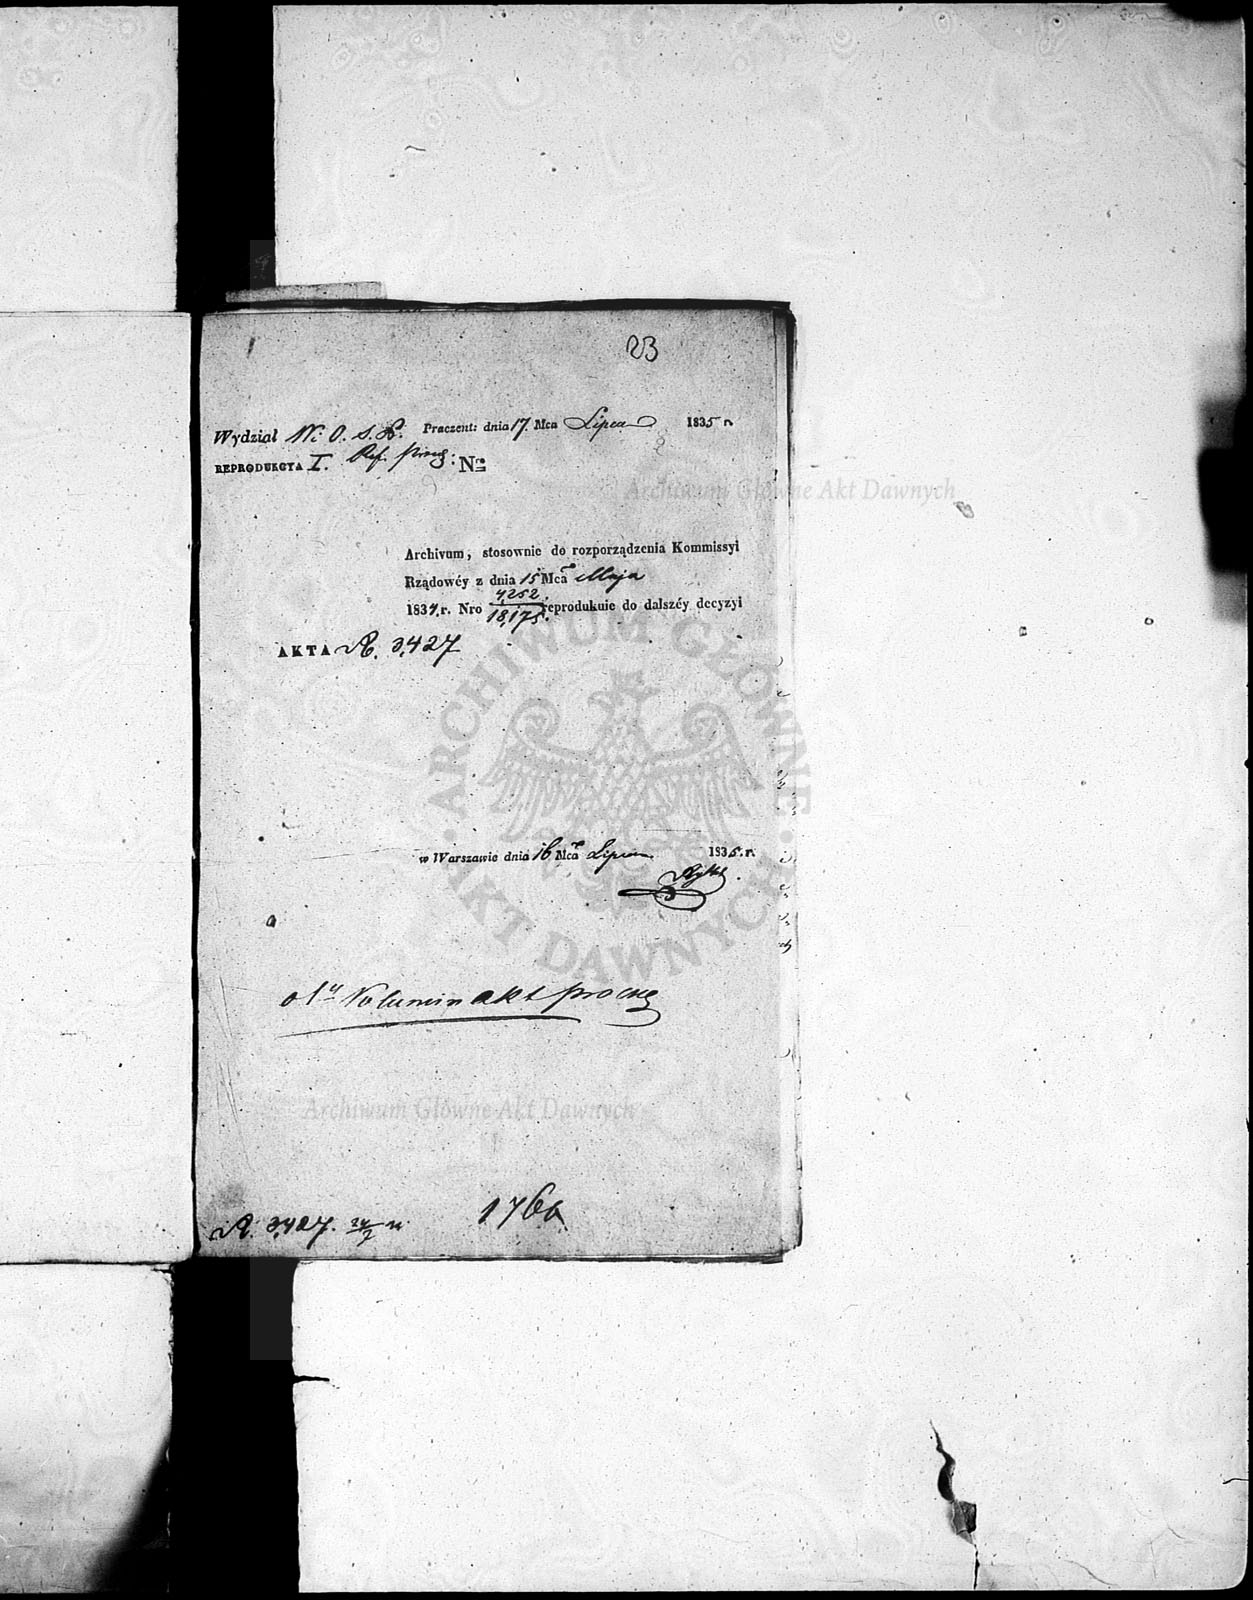 23
Wydział W. O. S. Praezent: dnia 17. Mca Lipca 1835 r
REPRODUKCYA I. Ref. Nro
Archiwum Główne Akt Dawnych
Archivum, stosownie do rozporządzenia Kommissyi
Rządowéy z dnia 15 Mca Maja
1834. r. Nro 4,252. / 18,175. reprodukuie do dalszéy decyzyi
AKTA A. 3,427
ARCHIWUM GŁÓWNE AKT DAWNYCH
w Warszawie dnia 16 Mca Lipca 1835. r.
Volumin akt
Archiwum Główne Akt Dawnych
A. 3,427.
176